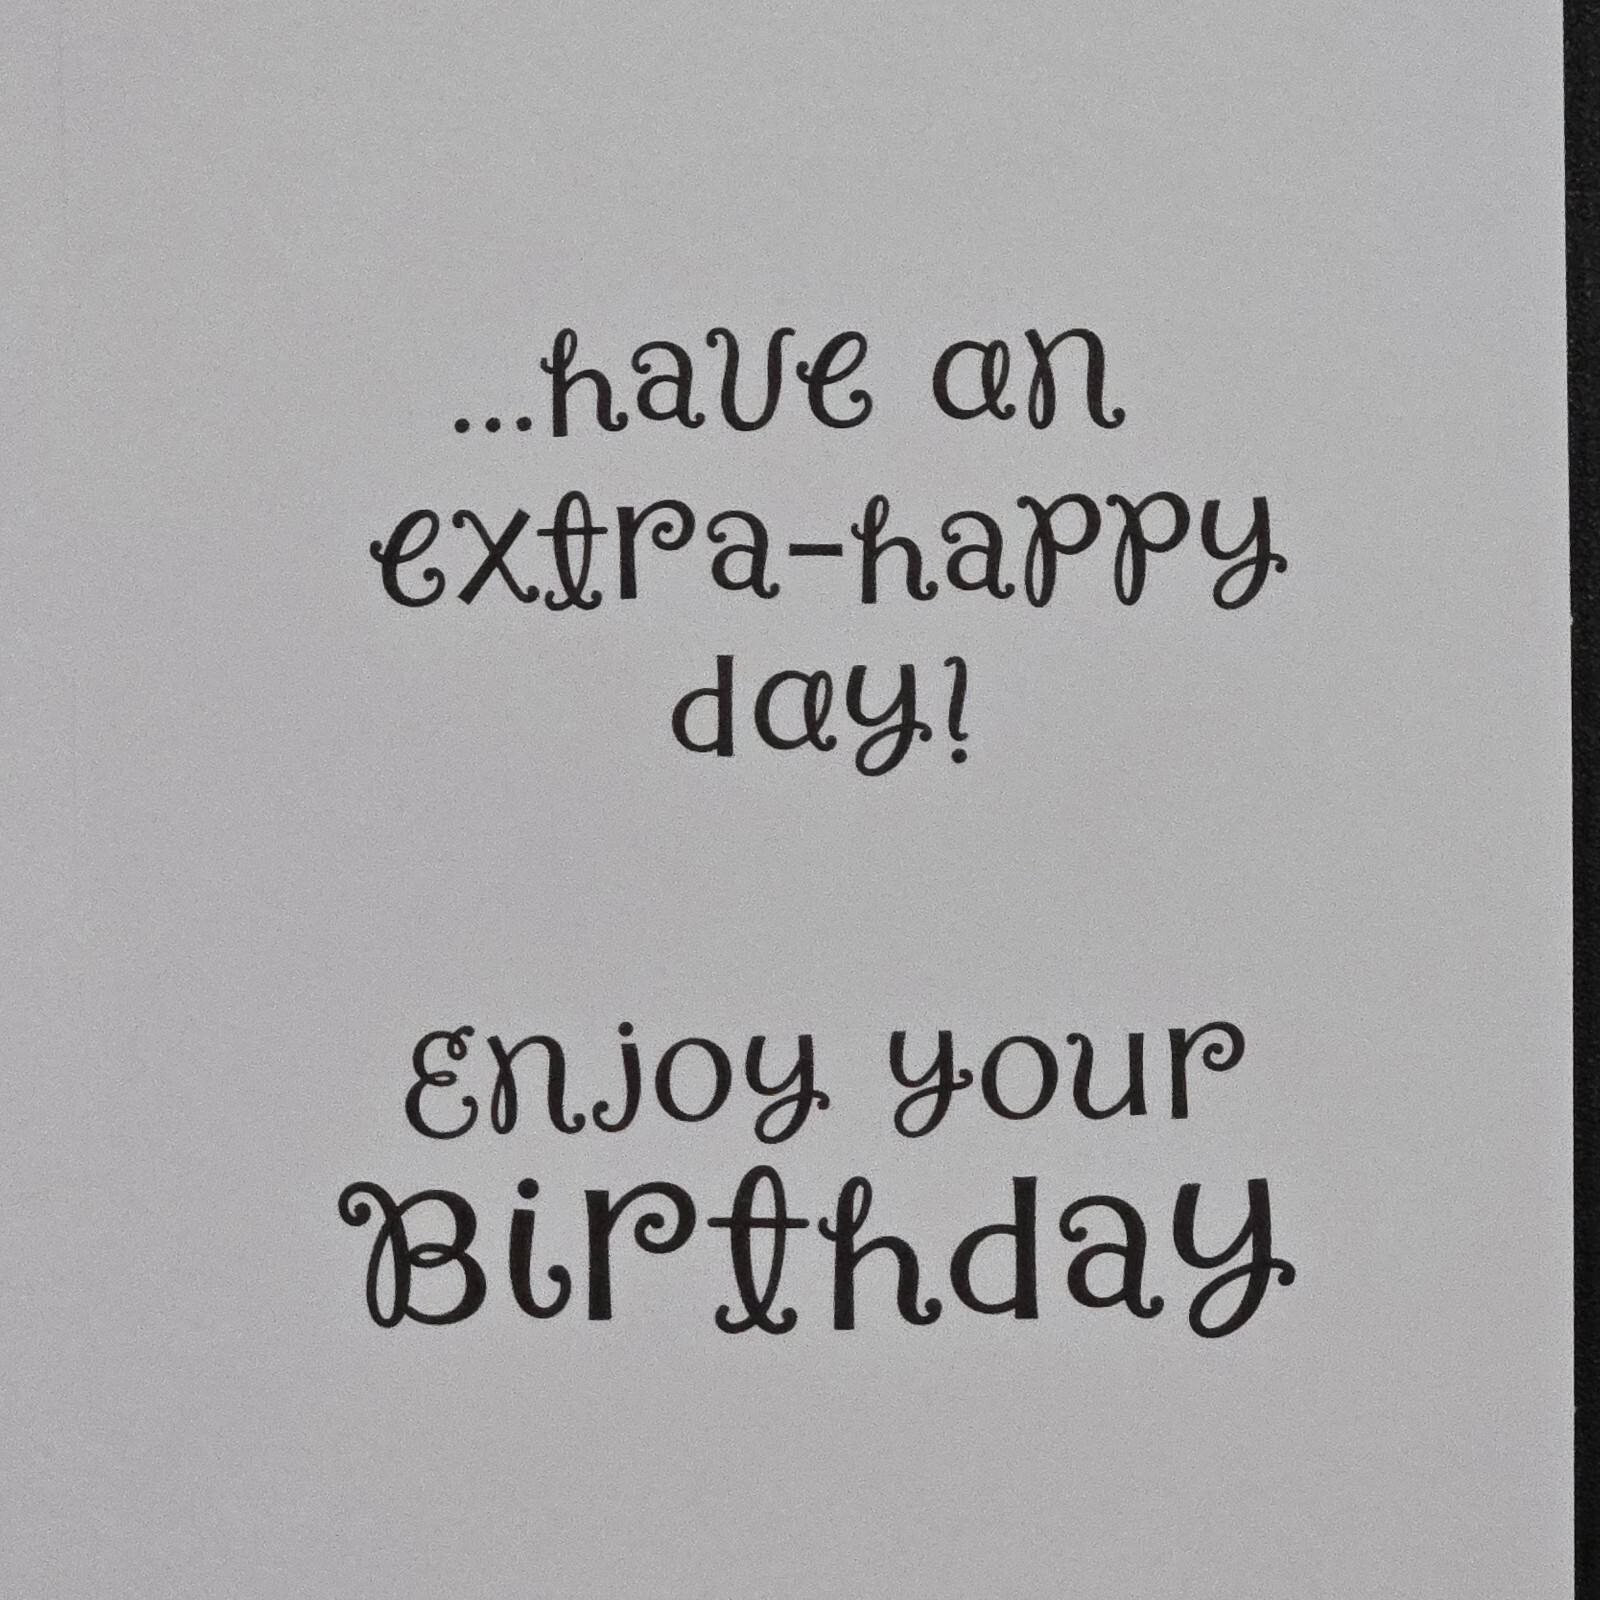 ...have an
extra-happy
day!
Enjoy your
Birthday